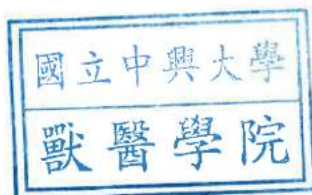 國立中興大學
獸醫學院